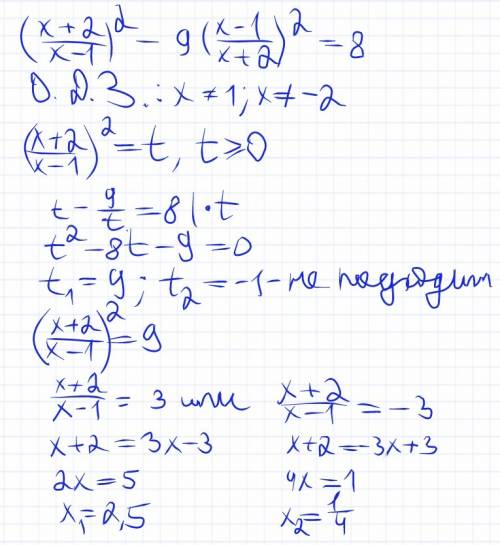 ((x+2)/(x-1))² - 9((x-1)/(x+2))² = 8
О.Д.З.: x ≠ 1; x ≠ -2
((x+2)/(x-1))² = t, t ⩾ 0
t - 9/t = 8 | · t
t² - 8t - 9 = 0
t₁ = 9; t₂ = -1 - не подходит
((x+2)/(x-1))² = 9
(x+2)/(x-1) = 3 или (x+2)/(x-1) = -3
x+2 = 3x-3 x+2 = -3x+3
2x = 5 4x = 1
x₁ = 2,5 x₂ = 1/4